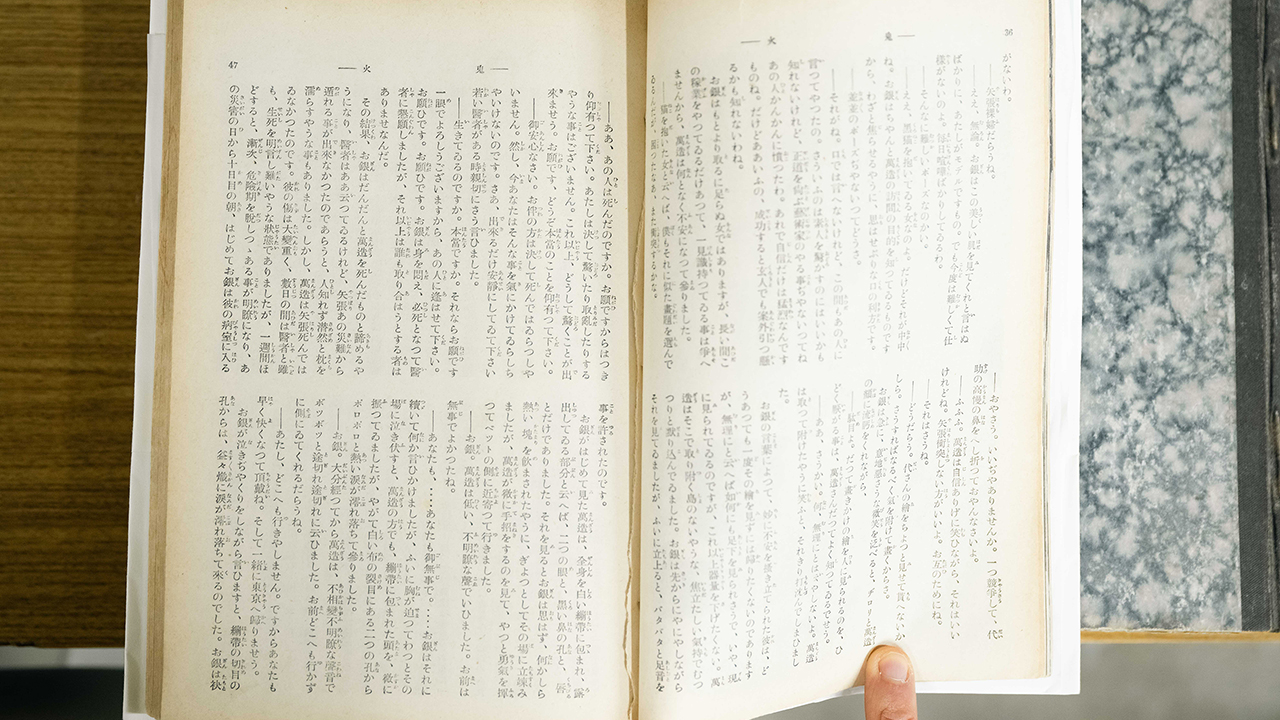 36
鬼火
がないわ。
――矢張裸婦だらうね。
――ええ、無論。お銀はこの美しい貝を見てくれと言はぬ
ばかりに、あたしがモデルですもの。でも今度は難しくて仕
様がないのよ。毎日喧嘩ばかりしてるわ。
――そんなに難しいポーズなのかい。
――ええ、黒猫を抱いてゐる女なのよ。だけどそれが中中
ね。お銀はちやんと、萬造の訪問の目的を知つてるものです
から、わざと焦らせるやうに、思はせぶりな口の利方です。
――普通のポーズぢやないつてどうさ。
――それがね。口では言へないけれど、この間もあの人に
言つてやつたの。さういふのは素人を驚かすのにはいいかも
知れないけれど、正道を向ふ藝術家のやる事ぢやないつてね
あの人かんかんに憤つたわ。あれで自信だけは猛烈なんです
ものね。だけどああいふの、成功すると玄人でも案外引つ懸
るかも知れないわね。
お銀はもとより取るに足らぬ女ではありますが、長い間こ
の稼業をやつてゐるだけあつて、一見識持つてゐる事は爭へ
ませんから、萬造は何となく不安になつて參りました。
――猫を抱いた女と云へば、僕もそれに似た畫題を選んで
――おやさう。いいぢやありませんか。一つ競爭して、代
助の高慢の鼻をへし折つておやんなさいよ。
――ふふふ。萬造は自信ありげに笑ひながら、それはいい
けれどね。矢張衝突しない方がいいよ。お互のためにね。
――それはさうね。
――どうだらう。代さんの繪をちよつと見せて貰へないか
しら。さうすればなるべく氣を附けて畫くからさ。
――駄目よ。だつて畫きかけの繪を人に見られるのを、ひ
どく厭がる事は、萬造さんだつてよく知つてゐるぢやないの
は取つて附けたやうに笑ふと、それきり打沈んでしまひまし
た。
お銀の言葉によつて、妙に不安を掻き立てられた彼は、ど
うあつても一度その繪を見ずには歸りたくないのであります
が、無理にと云へば如何にも足下を見られさうで、いや、現
に見られてゐるのですが、これ以上器量を下げたくない。萬
造はそこで取り附く島のないやうな、焦立たしい氣持でむつ
つりと默り込んでゐました。お銀は先からにやにやしながら
それを見てゐましたが、ふいに立上ると、バタバタと足音を
47
鬼火
――ああ、あの人は死んだのですか。お願ですからはつき
り仰有つて下さい。あたしは決して驚いたり取亂したりする
やうな事はございません。これ以上、どうして驚くことが出
來ませう。お願です、どうぞ本當のことを仰有つて下さい。
――御安心なさい。お伴の方は決して死んではゐらつしや
いません。然し、今あなたはそんな事を氣にかけてゐらしち
やいけないのです。さあ、出來るだけ安靜にしてゐて下さい
若い醫者はある親切にさう言ひました。
――生きてゐるのですか、本當ですか。それならお願です
一眼でよろしうございますから、あの人に逢はせて下さい。
お願ひです。お願ひです。お銀は身を悶え、必死となつて醫
者に懇願しましたが、それ以上は誰も取り合はうとする者は
ありませなんだ。
その結果、お銀はだんだんと萬造を死んだものと諦めるや
うになり、醫者はああ云つてゐるけれど、矢張あの災難から
遁れる事が出來なかつたのであらうと、人知れず潸然と枕を
濡らすやうな事もありました。しかし、萬造は矢張死んでは
ゐなかつたのです。彼の傷は大變重く、數日の間は醫者と雖
も、生死を明言し難いやうな狀態でありましたが、一週間ほ
どすると、漸次、危險期を脫しつつある事が明瞭になり、あ
の災害の日から十日目の朝、はじめてお銀は彼の病室に入る
事を許されたのです。
お銀がはじめて見た萬造は、全身を白い繃帶に包まれ、露
出してゐる部分と云へば、二つの眼と、黑い鼻の孔と、唇
とだけでありました。それを見るとお銀は思はず、何かしら
熱い塊を飮まされたやうに、ぎよつとしてその場に立竦み
ましたが、萬造が微に手招をするのを見て、やつと勇氣を揮
つてベツトの側に近寄つて行きました。
――お銀。萬造は低い、不明瞭な聲でいひました。お前は
無事でよかつたね。
――あなたも、……あなたも御無事で。……お銀はそれに
續いて何か言ひかけましたが、ふいに胸が迫つてわつとその
場に泣き伏すと、萬造の方でも、繃帶に包まれた頭を、微に
振つてゐましたが、やがて白い布の裂目にある二つの孔から
ボロボロと熱い涙が溢れ落ちて參りました。
――お銀。大分經つてから萬造は、不相變不明瞭な聲音で
ボツボツと途切れ途切れに云ひました。お前どこへも行かず
に側にゐてくれるだらうね。
――あたし、どこへも行きやしません。ですからあなたも
早く快くなつて頂戴ね。そして一緒に東京へ歸りませう。
お銀が泣きぢやくりをしながら言ひますと、繃帶の切目の
孔からは、益々熾に涙が溢れ落ちて來るのでした。お銀は袂